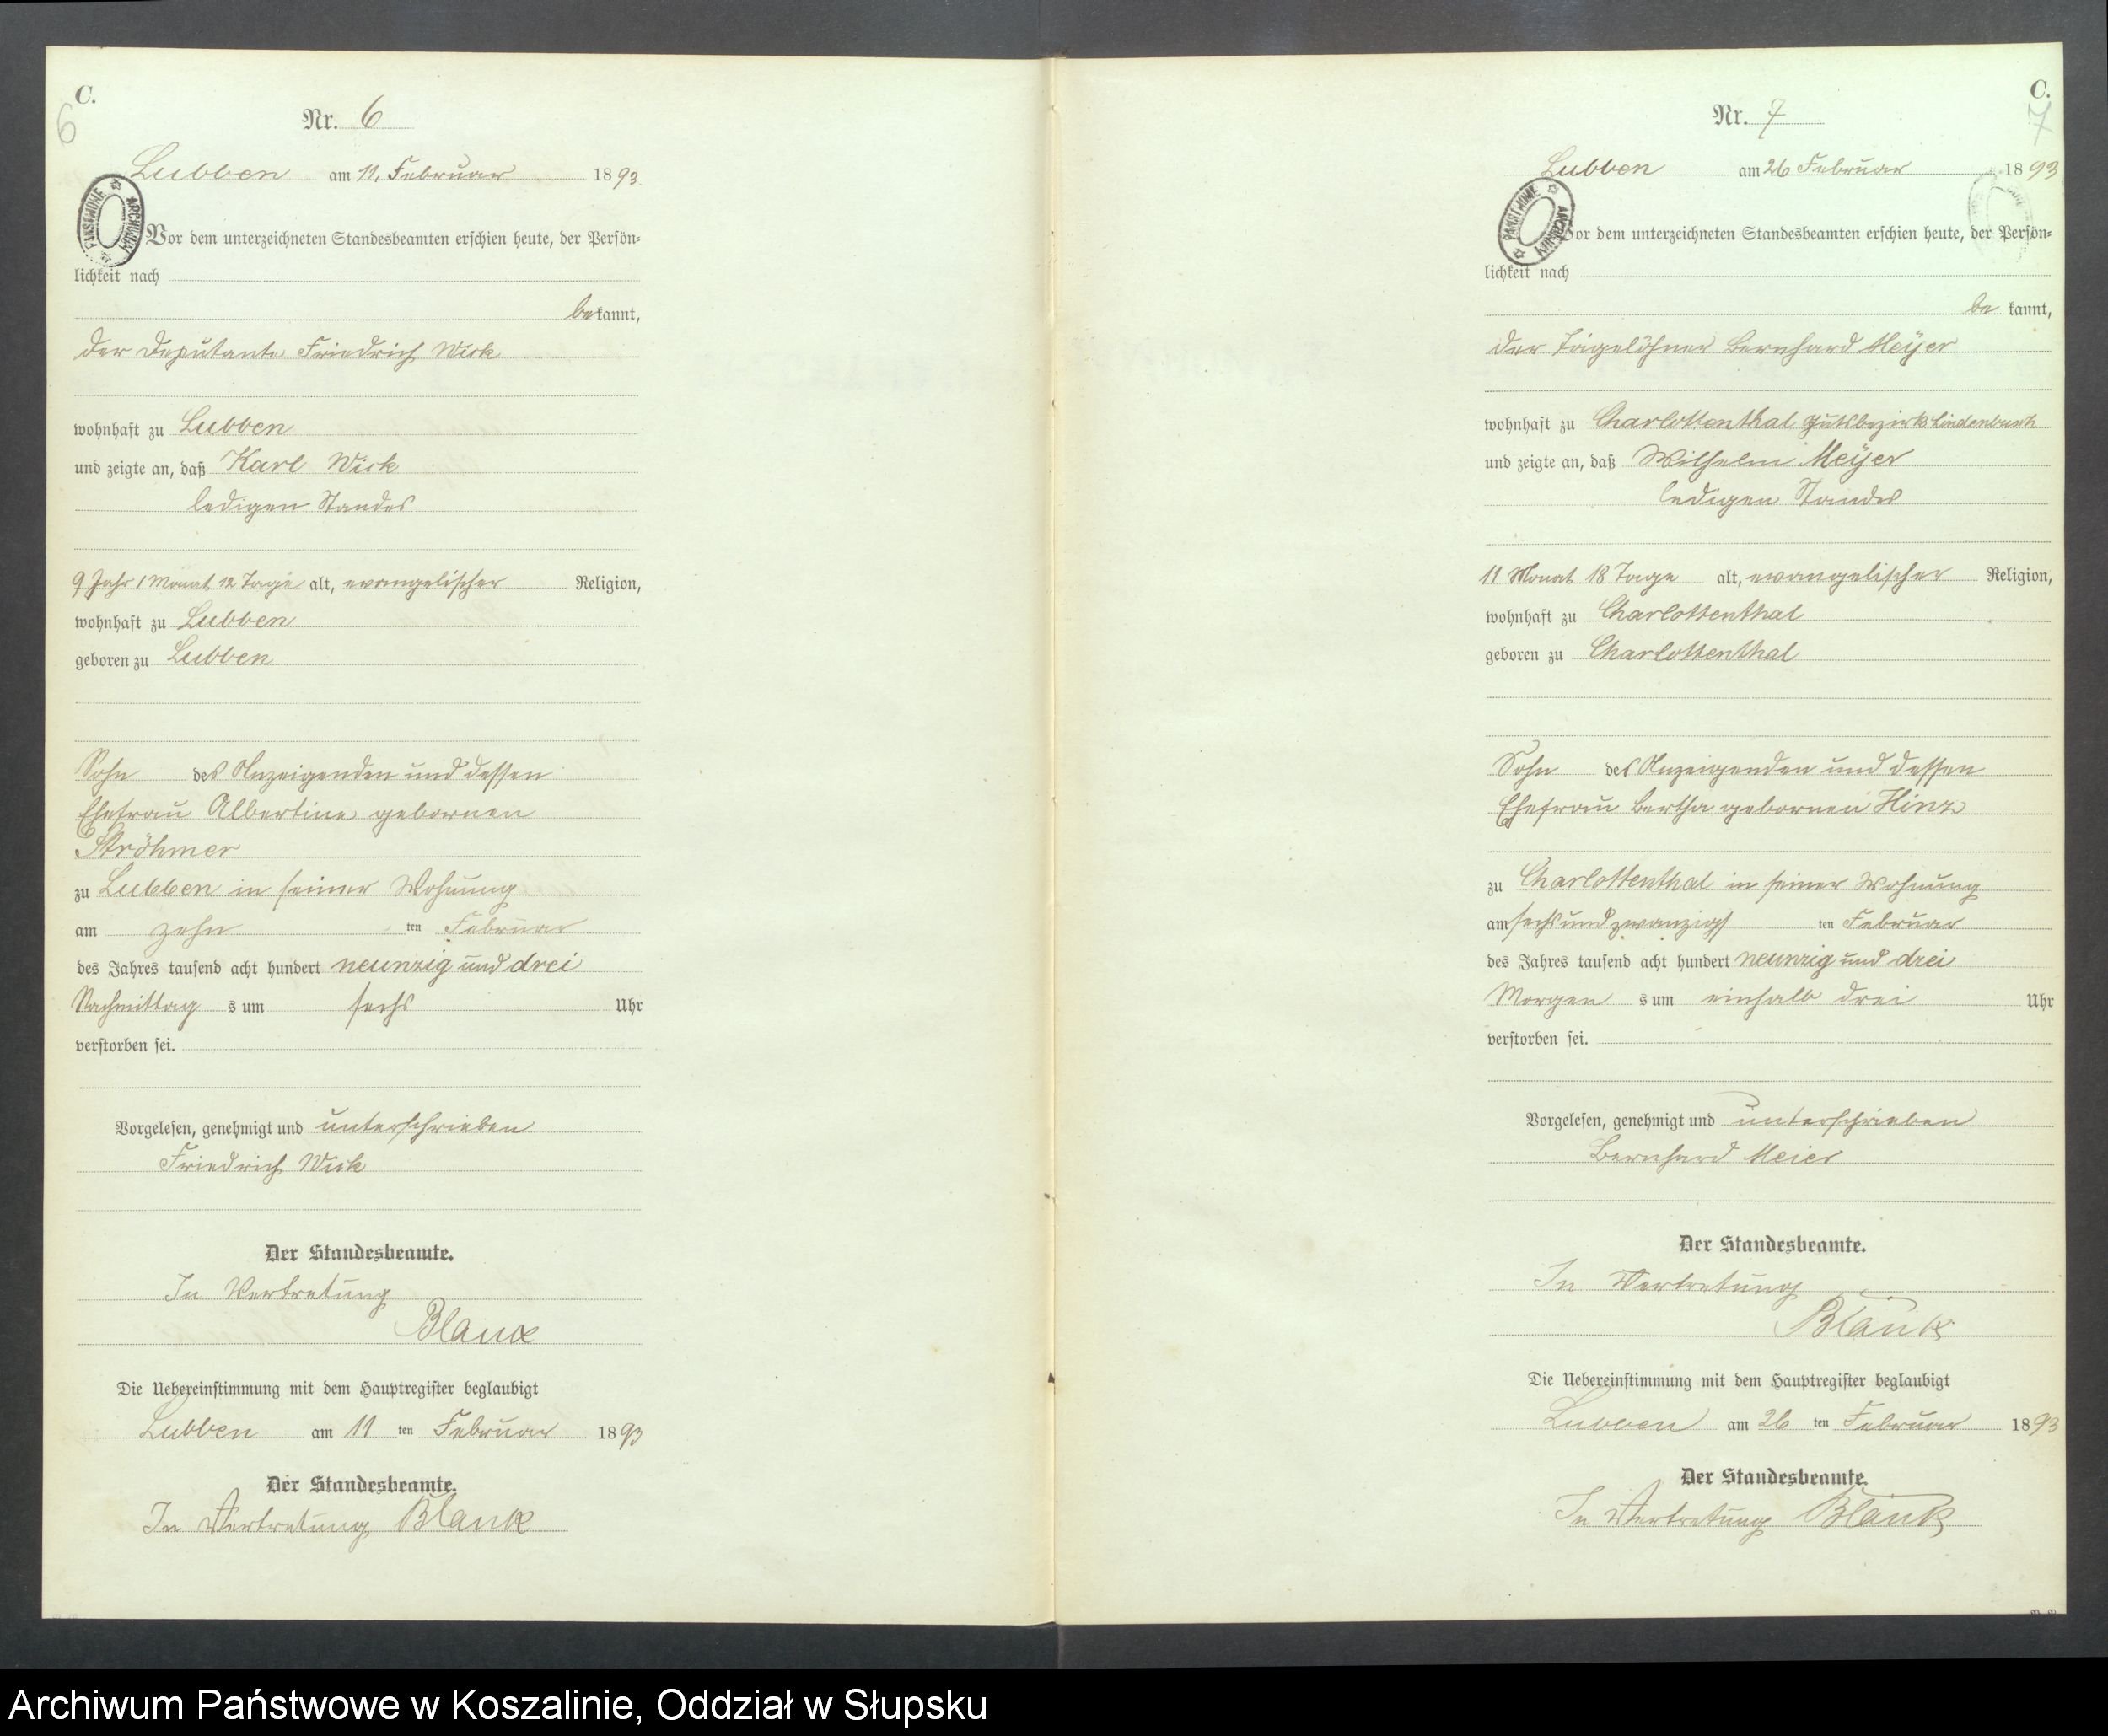 C.
6
Nr. 6
Lubben am 11. Februar 1893
PAŃSTWOWE ARCHIWUM
Vor dem unterzeichneten Standesbeamten erschien heute, der Persön-
lichkeit nach
bekannt,
der Deputante Friedrich Wick
wohnhaft zu Lubben
und zeigte an, daß Karl Wick
ledigen Standes
9 Jahr 1 Monat 12 Tage alt, evangelischer Religion,
wohnhaft zu Lubben
geboren zu Lubben
Sohn des Anzeigenden und dessen
Ehefrau Albertine gebornen
Ströhmer
zu Lubben in seiner Wohnung
am zehn ten Februar
des Jahres tausend acht hundert neunzig und drei
Nachmittag s um sechs Uhr
verstorben sei.
Vorgelesen, genehmigt und unterschrieben
Friedrich Wick
Der Standesbeamte.
In Vertretung
Blank
Die Uebereinstimmung mit dem Hauptregister beglaubigt
Lubben am 11 ten Februar 1893
Der Standesbeamte.
In Vertretung Blank
C.
7
Nr. 7
Lubben am 26 Februar 1893
PAŃSTWOWE ARCHIWUM
Vor dem unterzeichneten Standesbeamten erschien heute, der Persön-
lichkeit nach
be kannt,
der Tagelöhner Bernhard Meÿer
wohnhaft zu Charlottenthal Gutsbezirk Lindenbusch
und zeigte an, daß Wilhelm Meÿer
ledigen Standes
11 Monat 18 Tage alt, evangelischer Religion,
wohnhaft zu Charlottenthal
geboren zu Charlottenthal
Sohn des Anzeigenden und dessen
Ehefrau Bertha gebornen Hinz
zu Charlottenthal in seiner Wohnung
am sechsundzwanzigs ten Februar
des Jahres tausend acht hundert neunzig und drei
Morgen s um einhalb drei Uhr
verstorben sei.
Vorgelesen, genehmigt und unterschrieben
Bernhard Meier
Der Standesbeamte.
In Vertretung
Blank
Die Uebereinstimmung mit dem Hauptregister beglaubigt
Lubben am 26 ten Februar 1893
Der Standesbeamte.
In Vertretung Blank
Archiwum Państwowe w Koszalinie, Oddział w Słupsku